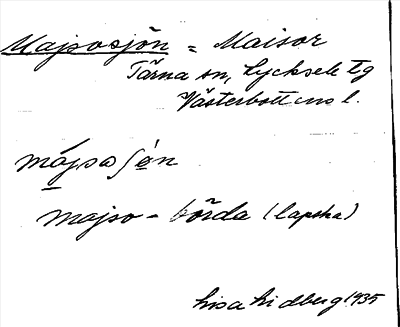 Majsosjön = Maisor
Tärna sn, Lycksele tg
Västerbottens l.
májsosjön
majso - börda (lapska)
Lisa Lidberg 1935